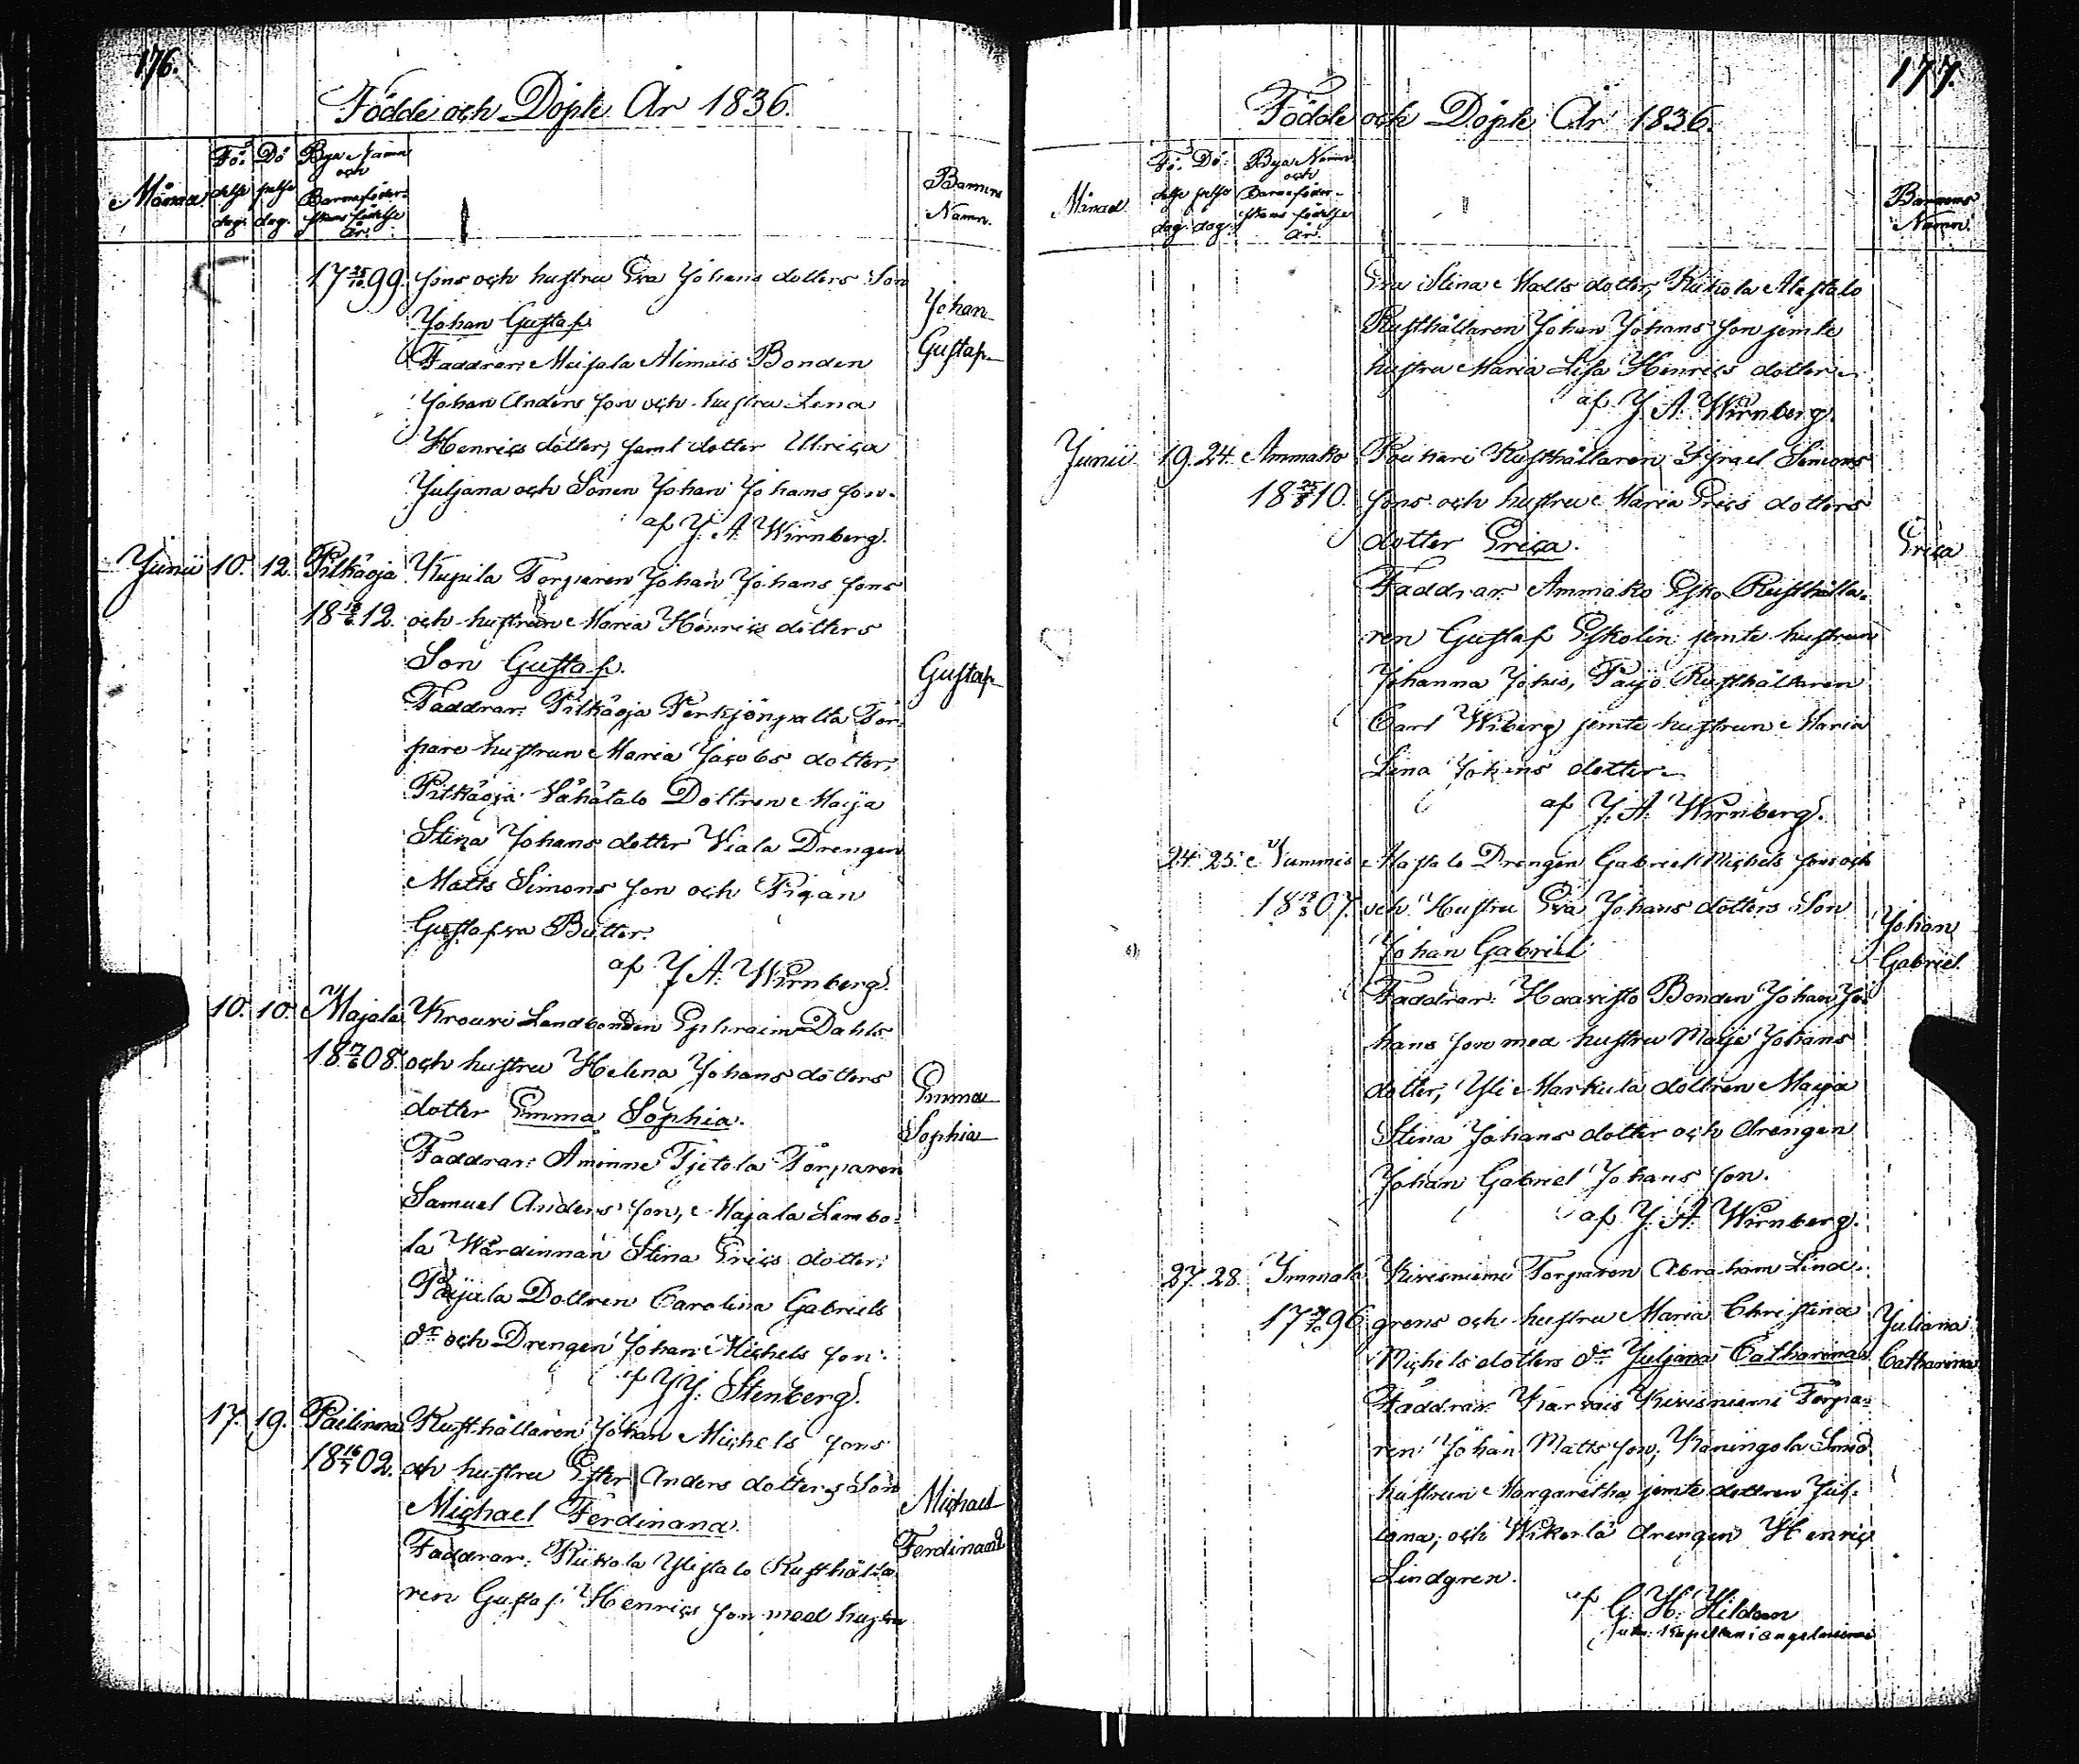 176.
Födde och Döpte År 1836.
Månad. Fö- delse dag. Dö pelse dag. Bya Namn och Barnaföder- skans födelse År. Barnens Namn.
17 25/10 99. sons och hustru Eva Johans dotters Son
Johan Gustaf. Johan Gustaf
Faddrar: Maisala Alimais Bonden
Johan Anders son och hustru Lena
Henrics dotter, samt dotter Ulrica
Juljana och Sonen Johan Johans son.
af J. A. Wirnberg.
Junii 10. 12. Pitkäoja Kupila Torparen Johan Johans sons
18 18/6 12. och hustrun Maria Henrics dotters
Son Gustaf. Gustaf
Faddrar: Pitkäoja Perkjönpalta Tor-
pare hustrun Maria Jacobs dotter,
Pitkäoja Vähätalo Dottren Maija
Stina Johans dotter Viala Drengen
Matts Simons son och Pigan
Gustafva Butter.
af J. A. Wirnberg.
10. 10. Majala Krouvi Landbonden Ephraim Dahls
18 17/6 08. och hustru Helena Johans dotters
dotter Emma Sophia. Emma Sophia
Faddrar: Aminne Tjitola Torparen
Samuel Anders son, Majala Lambo-
la Wärdinnan Stina Erics dotter,
Pajula Dottren Carolina Gabriels
dr och Drengen Johan Michels son.
af J. J. Stenberg.
17. 19. Pailinna Rusthållaren Johan Michels sons
18 16/7 02. och hustru Ester Anders dotters Son
Michael Ferdinand. Michael Ferdinand
Faddrar: Rükola Ylistalo Rusthålla
ren Gustaf Henrics son med hustru
177.
Födde och Döpte År 1836.
Månad. Fö- delse dag. Dö- pelse dag. Bya Namn och Barnaföder- skans födelse År. Barnens Namn.
Eva Stina Matts dotter, Rükola Alastalo
Rusthållaren Johan Johans son jemte
hustru Maria Lisa Henrics dotter.
af J. A. Wirnberg.
Junii. 19. 24. Ammako Poukari Rusthållaren Israel Simons
18 25/8 10. sons och hustru Maria Erics dotters
dotter Erica. Erica
Faddrar: Ammako Esko Rusthålla-
ren Gustaf Eskolin jemte hustrun
Johanna Johis, Pajo Rusthållaren
Carl Wiberg jemte hustrun Maria
Lina Johans dotter.
af J. A. Wirnberg.
24. 25. Nummis Alastalo Drengen Gabriel Michels sons och
18 19/3 07. och Hustru Eva Johans dotters Son
Johan Gabriel Johan Gabriel.
Faddrar: Haavisto Bonden Johan Jo-
hans son med hustru Maja Johans
dotter, Yli Markula dottren Maja
Stina Johans dotter och drengen
Johan Gabriel Johans son.
af J. A. Wirnberg.
27. 28. Immala Kiresniemi Torparen Abraham Lind-
17 96 grens och hustru Maria Christina
Michels dotters dr Juljana Catharina. Juliana Catharina
Faddrar: Karvais Kiresniemi Torpa-
ren Johan Matts son, Kaningola Smed
hustrun Margaretha jemte dottren Jul-
iana, och Wikerla drengen Henric
Lindgren.
af G. H. Hildeen